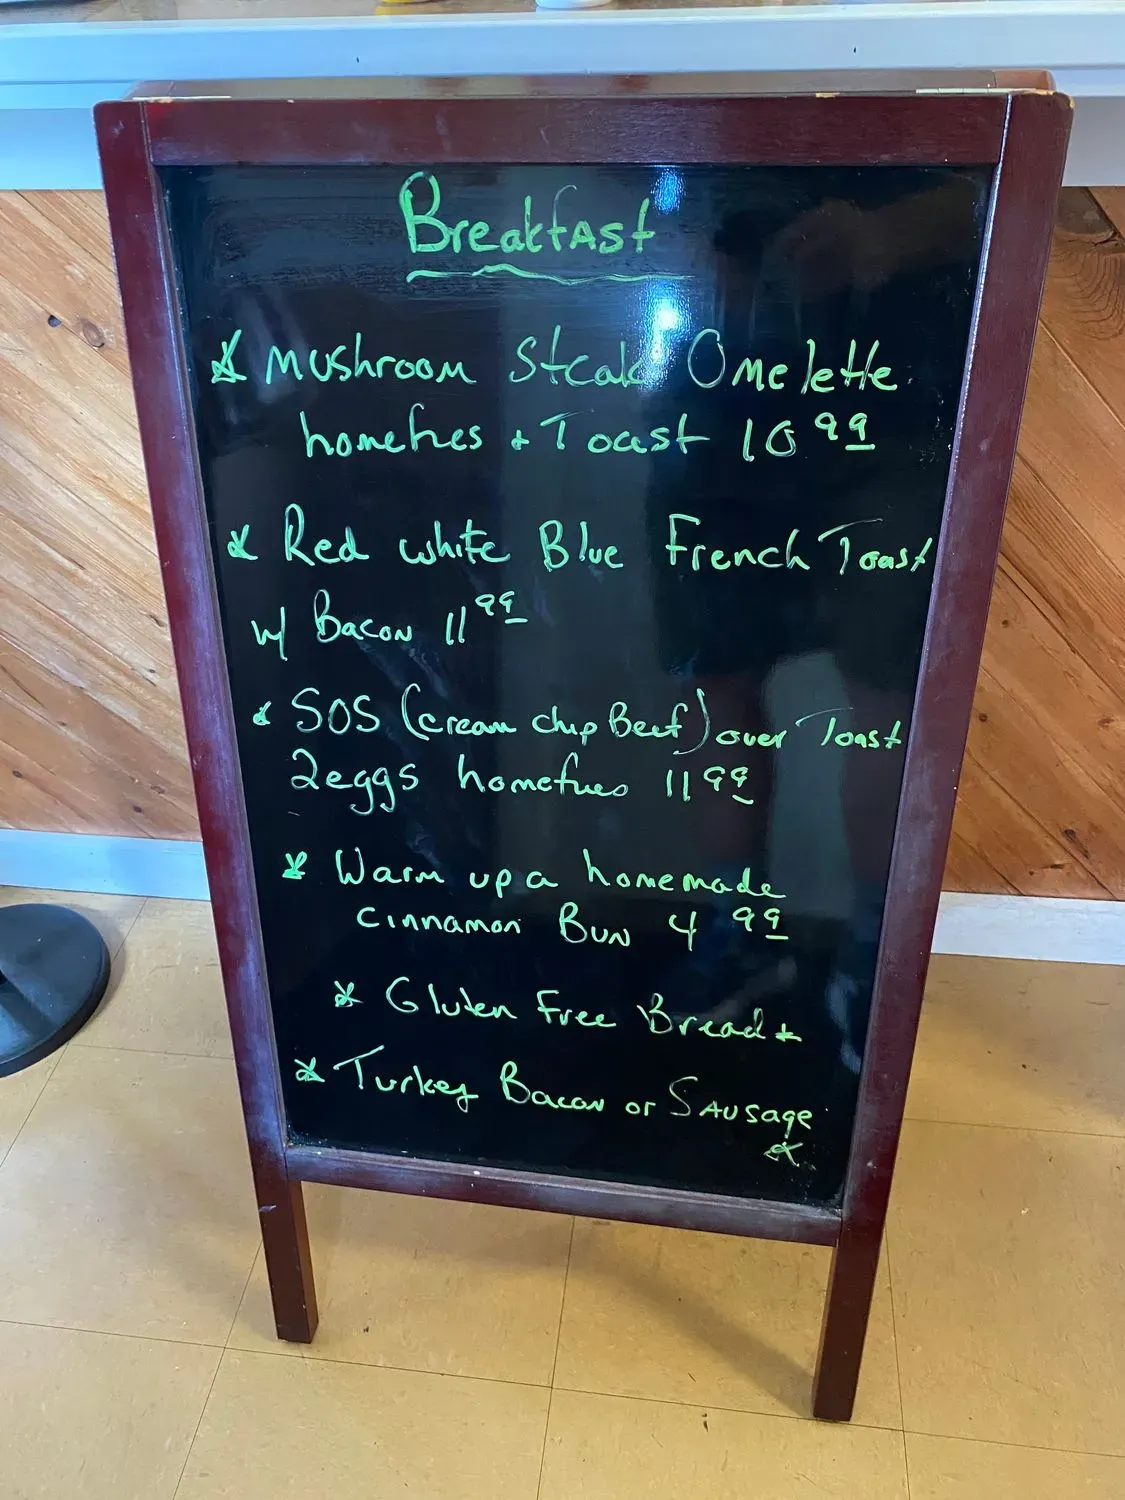 Breakfast
* Mushroom Steak Omelette
homefries + Toast 10 99
* Red white Blue French Toast
w/ Bacon 11 99
* SOS (cream chip Beef) over Toast
2eggs homefries 11 99
* Warm up a homemade
cinnamon Bun 4 99
* Gluten Free Bread *
* Turkey Bacon or Sausage
*